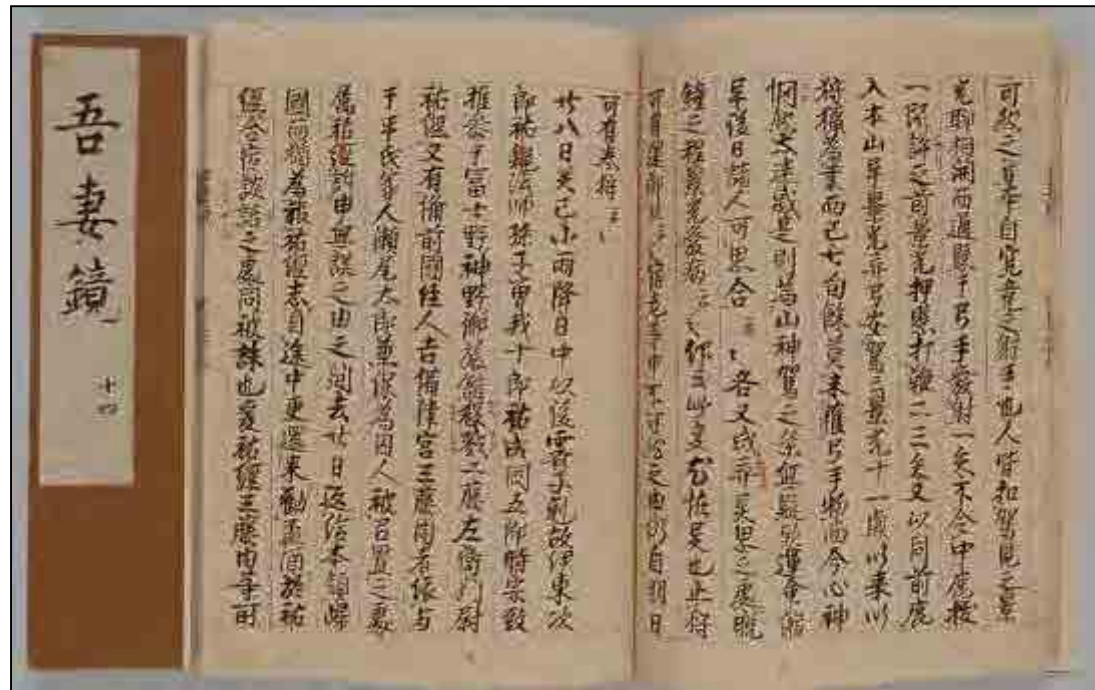 可致之旨本自究竟之射手也人皆扣駕見之景
光聊相開而通懸于弓手發射一矢不令中鹿抜
一段許之前景光押懸打鞭二三矢又以同前鹿
入本山畢景光弃弓安駕云景光十一歳以来以
狩獵為業而已七旬餘莫未獲弓手物而今心神
惘然太迷惑是則為山神駕之条無疑歟運命縮
畢後日諸人可思合云々各又成奇異思之處晩
鐘之程景光發病云々仰云此事尤恠異也止狩
可有還御歟云々宿老等申不可然之由仍自明日
可有巻狩云々
廿八日癸巳小雨降日中以後霽子剋故伊東次
郎祐親法師孫子曽我十郎祐成同五郎時宗致
推参于富士野神野御旅舘殺戮工藤左衛門尉
祐經又有備前國住人吉備津宮王藤内者依与
于平氏家人瀬尾太郎兼保為囚人被召置之處
属祐經訴申無誤之由之間去廿日返給本領歸
國而猶為報祐經志自途中更還来勸盃酒於祐
經合宿談話之處同被誅也爰祐經王藤内等所
吾妻鏡
十四